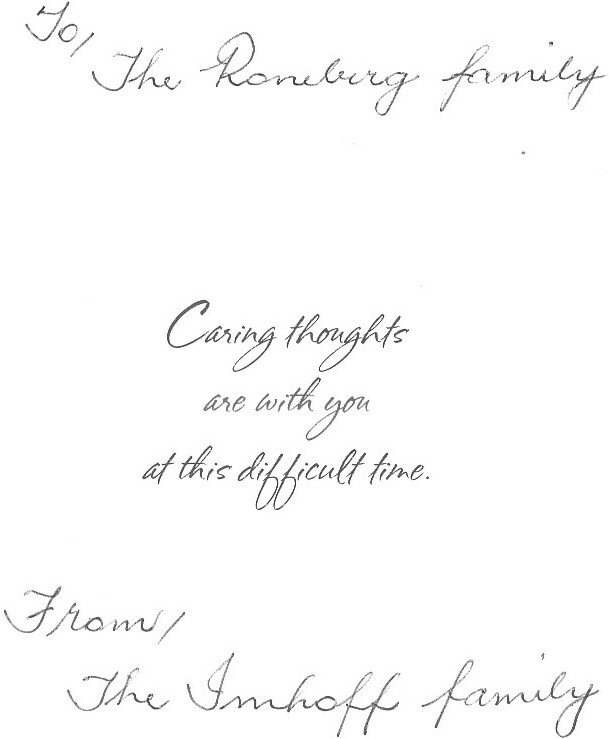 To/
The Roneberg family
Caring thoughts
are with you
at this difficult time.
From/
The Imhoff family